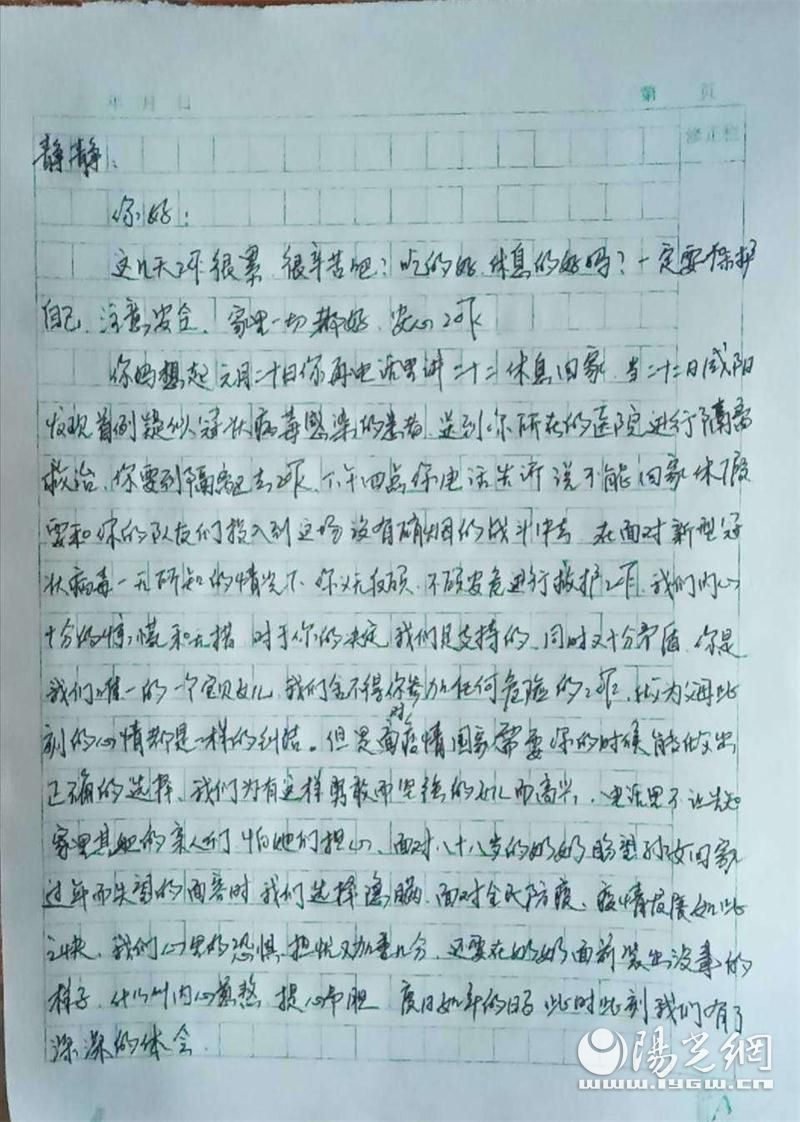 年 月 日 第 页
静静:
你好:
这几天工作很累、很辛苦吧?吃的好、休息的好吗?一定要保护
自己、注意安全、家里一切都好、安心工作
你妈想起元月二十日你再电话里讲二十二休息回家、当二十二日咸阳
发现首例疑似冠状病毒感染的患者、送到你所在的医院进行隔离
救治、你要到隔离区去工作、下午四点你电话告诉说不能回家休假
要和你的队友们投入到这场没有硝烟的战斗中去 在面对新型冠
状病毒一无所知的情况下、你义无反顾、不顾安危进行救护工作、我们内心
十分的惊慌和无措 对于你的决定、我们是支持的、同时又十分矛盾、你是
我们唯一的一个宝贝女儿、我们舍不得你参加任何危险的工作、成为父母此
刻的心情都是一样的纠结。但是面对疫情国家需要你的时候能做出
正确的选择、我们为有这样勇敢而坚强的女儿而高兴、电话里不让告知
家里其她的亲人们怕她们担心、面对八十八岁的奶奶盼望孙女回家
过年而失望的面容时我们选择隐瞒、面对全民防疫、疫情发展如此
之快、我们心里的恐惧、担忧又加重几分、还要在奶奶面前装出没事的
样子、什么叫内心煎熬、提心吊胆、度日如年的日子此时此刻我们有了
深深的体会
陽光網
www.iygw.cn